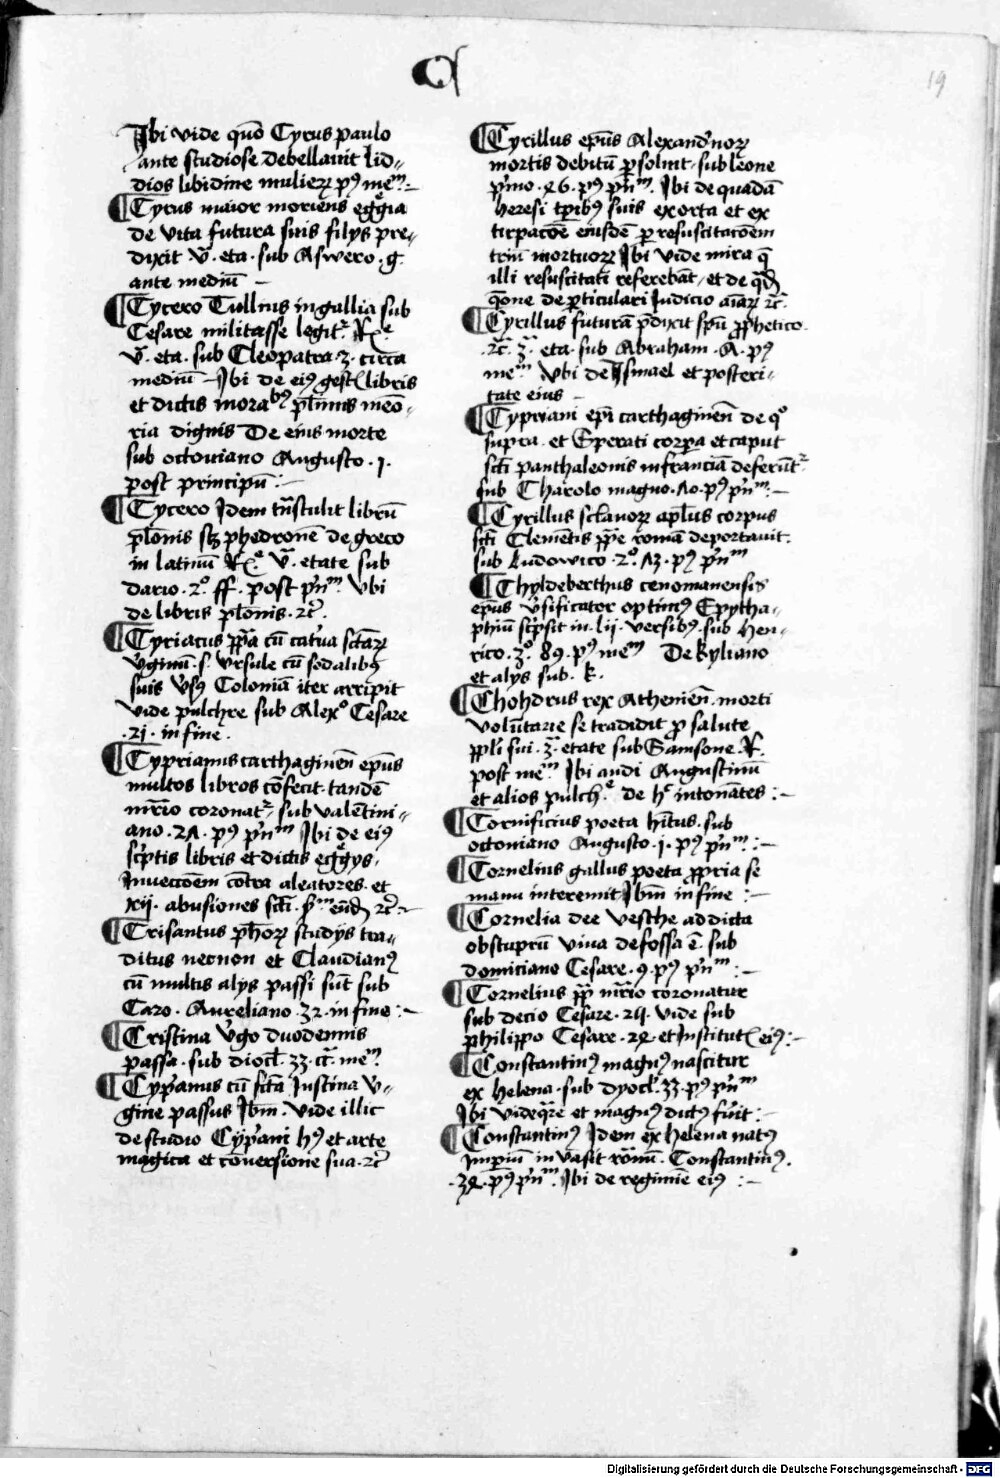 C
19
Ibi vide quō Cyrus paulo
ante studiose debellavit lid-
dios libidine mulieꝝ pꝰ meᵐ:-
¶ Cyrus maior moriens egᵍia
de vita futura suis filys pre-
dixit v̄. eta. sub Aswero. g.
ante mediū -
¶ Cycero Tullius in gallia sub
Cesare militasse legitᷣ.
v̄. eta. sub Cleopatra .3. circa
mediū - Ibi de eiꝰ gest libris
et dictis
ria dignis De eius morte
sub octouiano Augusto .1.
post principiū :-
¶ Cycero Idem trāstulit librū
pl̄onis sꝫ phedronē de greco
in latinū v̄. etate sub
dario .2º. ff. post pʳnᵐ. vbi
de libris pl̄onis. ꝛc̄.
¶ Cyriacus pp̄a cū catᵉua sctāꝝ
vᵍinū .s. vrsule cū sodalibꝰ
suis vᵉsꝰ Coloniā iter arripit
vide pulchre sub Alexº Cesare
.21. in fine.
¶ Cyprianus carthaginēn ep̄us
multos libros cōfecit tandē
mr̄io coronatᷣ, sub valentini-
ano .2Λ. pꝰ pʳnᵐ Ibi de eiꝰ
scᵖtis libris et dictis egᵍys,
Inuectōem cōtra aleatores. et
xij. abusiones scƚi ꝛc̄:-
¶ Crisantus ph̄oꝝ studijs tra-
ditus necnon et Claudianꝰ
cū multis alys passi sūt sub
Caro. Aureliano .32. in fine:-
¶ Cristina vᵍo duodennis
passa. sub diocl̄. 33. cᵃ. meᵐ
¶ Cypᵃanus cū scā Iustina v-
gine passus Ibm̄. Vide illic
de studio Cypᵃani hꝰ et arte
magica et cōuersione sua. ꝛc̄
¶ Cyrillus ep̄us Alexandᵉnoꝝ
mortis debitū ꝑsoluit. sub leone
pᵃmo .46. pꝰ pʳnᵐ. Ibi de quadā
heresi tp̄ribꝰ suis exorta et ex
tirpacōe eiusdē ꝑ resuscitacōem
triū mortuoꝝ Ibi vide mira q̄
illi resuscitati referebāt, et de
q̄one de ꝑticulari Iudicio aīaꝝ ꝛc̄.
¶ Cyrillus futurā pᵉdixit spū ꝓphetico.
ꝛc̄. 3ᵃ. eta. sub Abraham. A. pꝰ
meᵐ Vbi de Ismael et posteri-
tate eius -
¶ Cypriani ep̄i carthaginēn de qº
supra. et Sperati corpᵃa et caput
scƚi panthaleonis in franciā deferūtᷣ
sub Charolo magno. Λ0. pꝰ pʳnᵐ:-
¶ Cyrillus scƚauoꝝ apl̄us corpus
scƚi Clemētis pp̄e romā deportauit.
sub Ludowico. 2º. Λ3. pꝰ pʳnᵐ
¶ Chyldeberthus cenomanensis
ep̄us vᵉsificator optimꝰ Epytha-
phiū scᵖsit in. lij. versibꝰ. sub Hen-
rico. 3º. 89. pꝰ meᵐ De kyliano
et alys sub. k.
¶ Chohdrus rex Atheniēn. morti
volūtarie se tradidit ꝓ salute
ppl̄i sui. 3ᵃ. etate sub Samsone. R.
post meᵐ Ibi audi Augustinū
et alios pulchᵉ. de hᶜ intonātes :-
¶ Cornificius poeta hītus. sub
octouiano Augusto .1. pꝰ pʳnᵐ. :-
¶ Cornelius gallus poeta ꝓpria se
manu interemit Ibm̄ in fine :-
¶ Cornelia dee vesthe addicta
ob stuprū viua defossa ē. sub
domiciano Cesare. 9. pꝰ pʳnᵐ :-
¶ Cornelius pp̄ mr̄io coronatur
sub decio Cesare. vide sub
philippo Cesare. et Institut eiꝰ:-
¶ Constantinꝰ magnꝰ nascitur
ex helena. sub dyocl̄. 33. pꝰ pʳnᵐ
Ibi vide qᵃre et magnꝰ dictꝰ fuᵉit :-
¶ Constantinꝰ Idem ex helena natꝰ
Impiū inuasit romā. Constantinꝰ.
.34. pꝰ pʳnᵐ. Ibi de regimīe eiꝰ :-
Digitalisierung gefördert durch die Deutsche Forschungsgemeinschaft - DFG